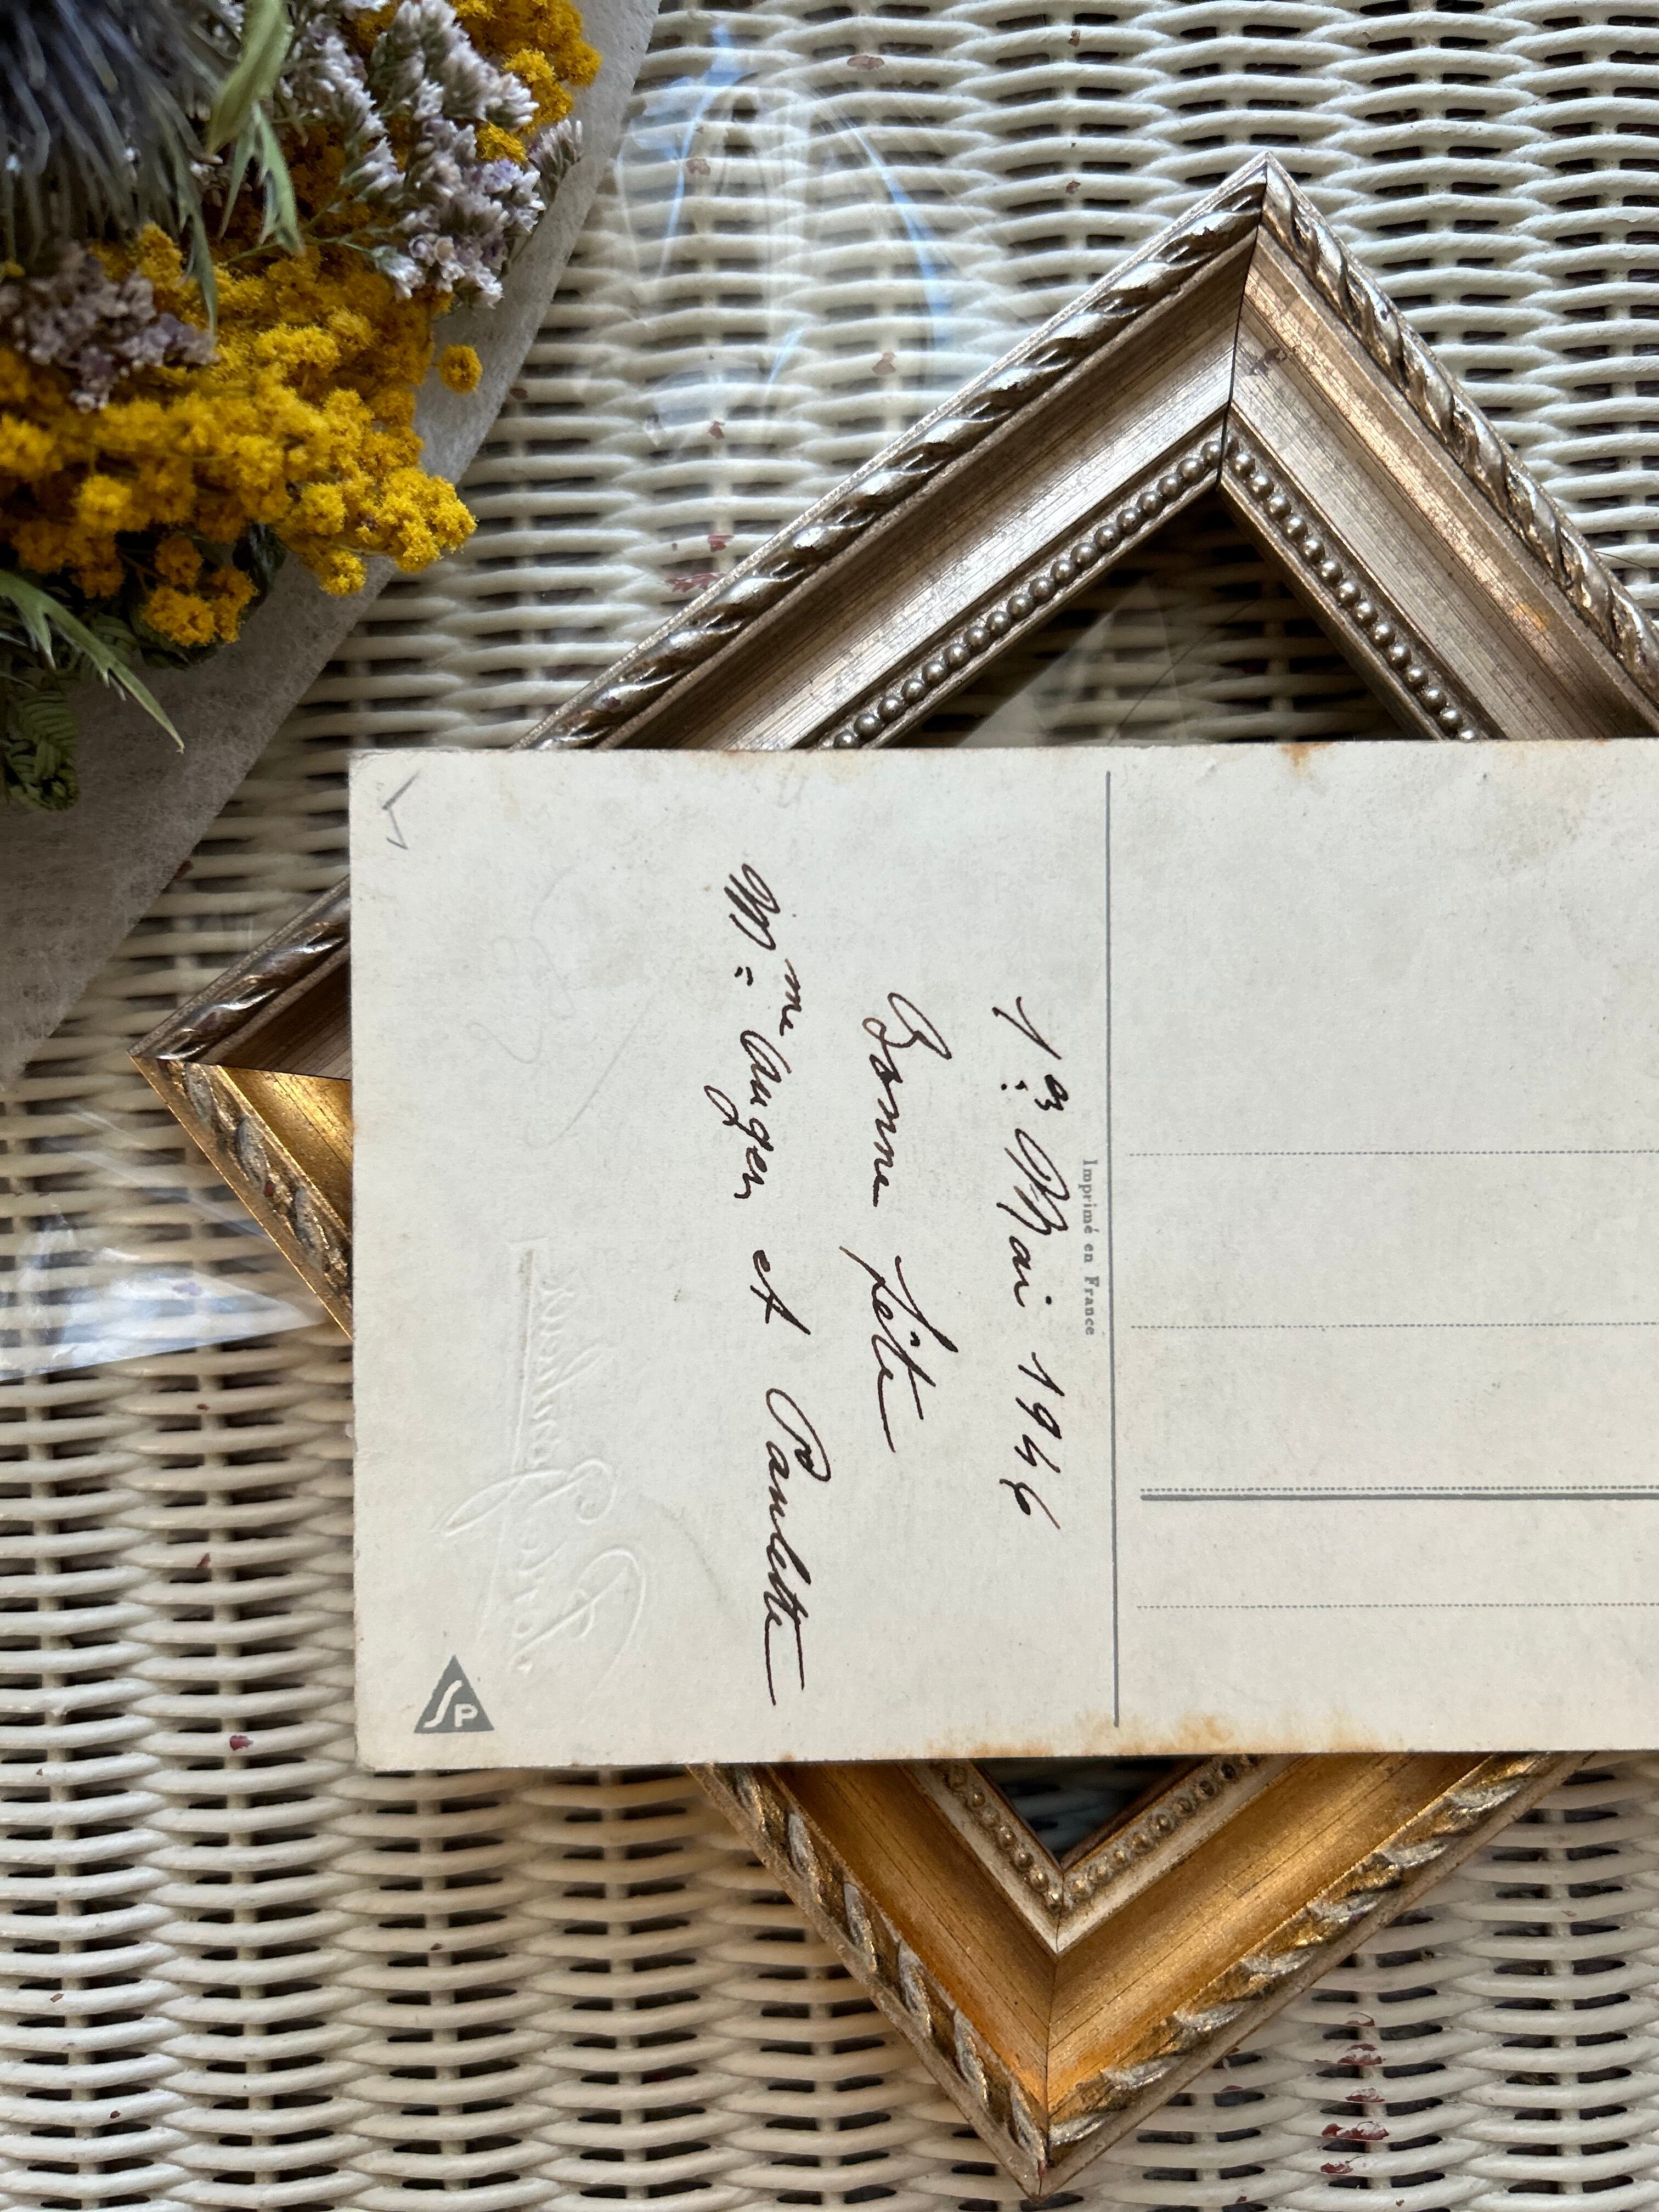 1er Mai 1946
Bonne fête
Mme Auger et Paulette
Imprimé en France
SP